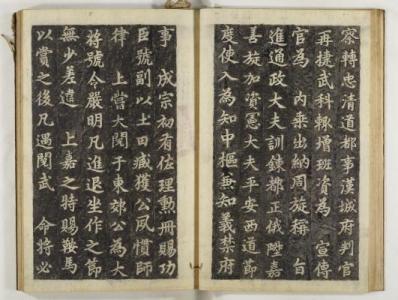 察轉忠清道都事漢城府判官
再捷武科輙增班資為 宣傳
官為 內乗出納周旋稱 旨
進通政大夫訓鍊都正俄陞嘉
善旋加資憲大夫平安西道節
度使入為知中樞兼知義禁府
事 成宗初有佐理勳冊賜功
臣號副以土田臧獲公夙慣師
律 上嘗大閱于東郊公為大
将號令嚴明凡進退坐作之節
無少差違 上嘉之時賜鞍馬
以賞之後凡遇閱武 命将必